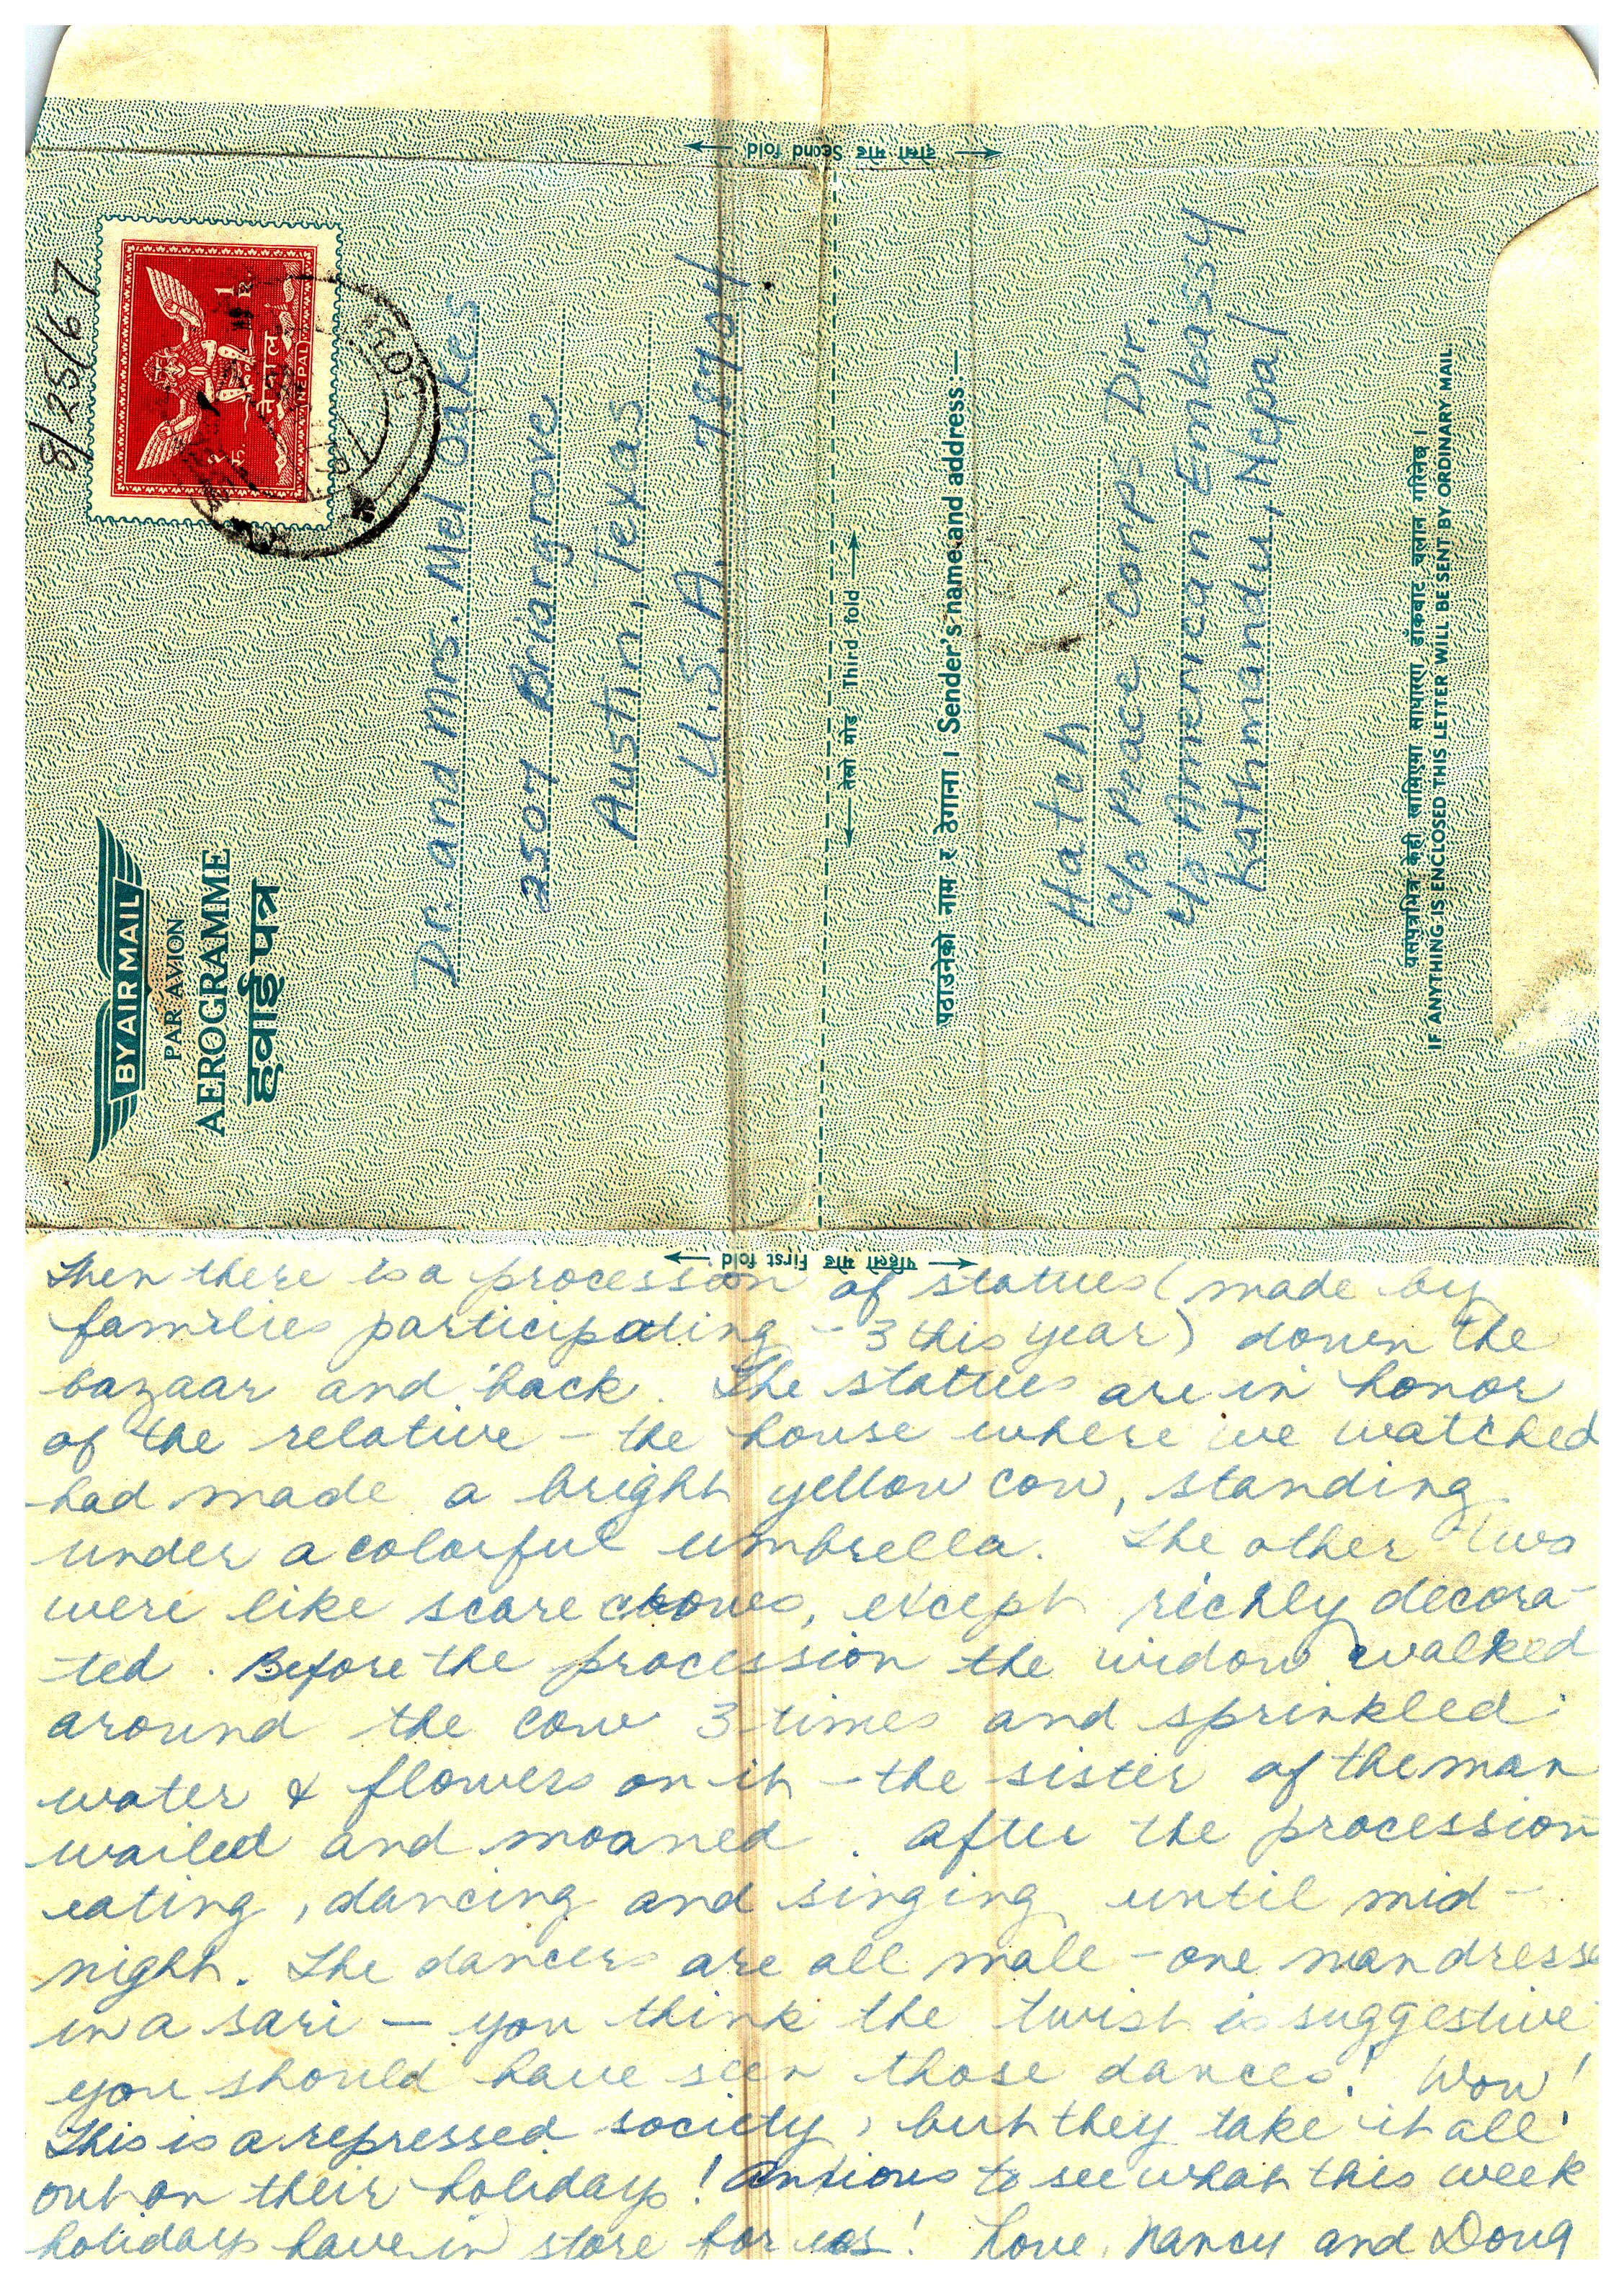 8/25/67
नेपाल
NEPAL
BY AIR MAIL
PAR AVION
AEROGRAMME
हवाईपत्र
Dr. and Mrs. Mel Oakes
2507 Briargrove
Austin, Texas
U.S.A. 78704
दोस्रो मोड Second fold
तेस्रो मोड Third fold
पठाउनेको नाम र ठेगाना । Sender's name and address:—
Hatch
c/o Peace Corps Dir.
c/o American Embassy
Kathmandu, Nepal
यसपत्रभित्र केही सामिएमा साधारण डाँकबाट चलान गरिनेछ ।
IF ANYTHING IS ENCLOSED THIS LETTER WILL BE SENT BY ORDINARY MAIL
पहिलो मोड First fold
Then there is a procession of statues (made by
families participating - 3 this year) down the
bazaar and back. The statues are in honor
of the relative - the house where we watched
had made a bright yellow cow, standing
under a colorful umbrella. The other two
were like scare crows, except richly decora-
ted. Before the procession the widow walked
around the cow 3 times and sprinkled
water & flowers on it - the sister of the man
wailed and moaned. After the procession
eating, dancing and singing until mid-
night. The dancers are all male - one man dresse
in a sari — you think the twist is suggestive
you should have seen those dances! Wow!
This is a repressed society, but they take it all
out on their holidays! Anxious to see what this week
holidays have in store for us! Love, Nancy and Doug